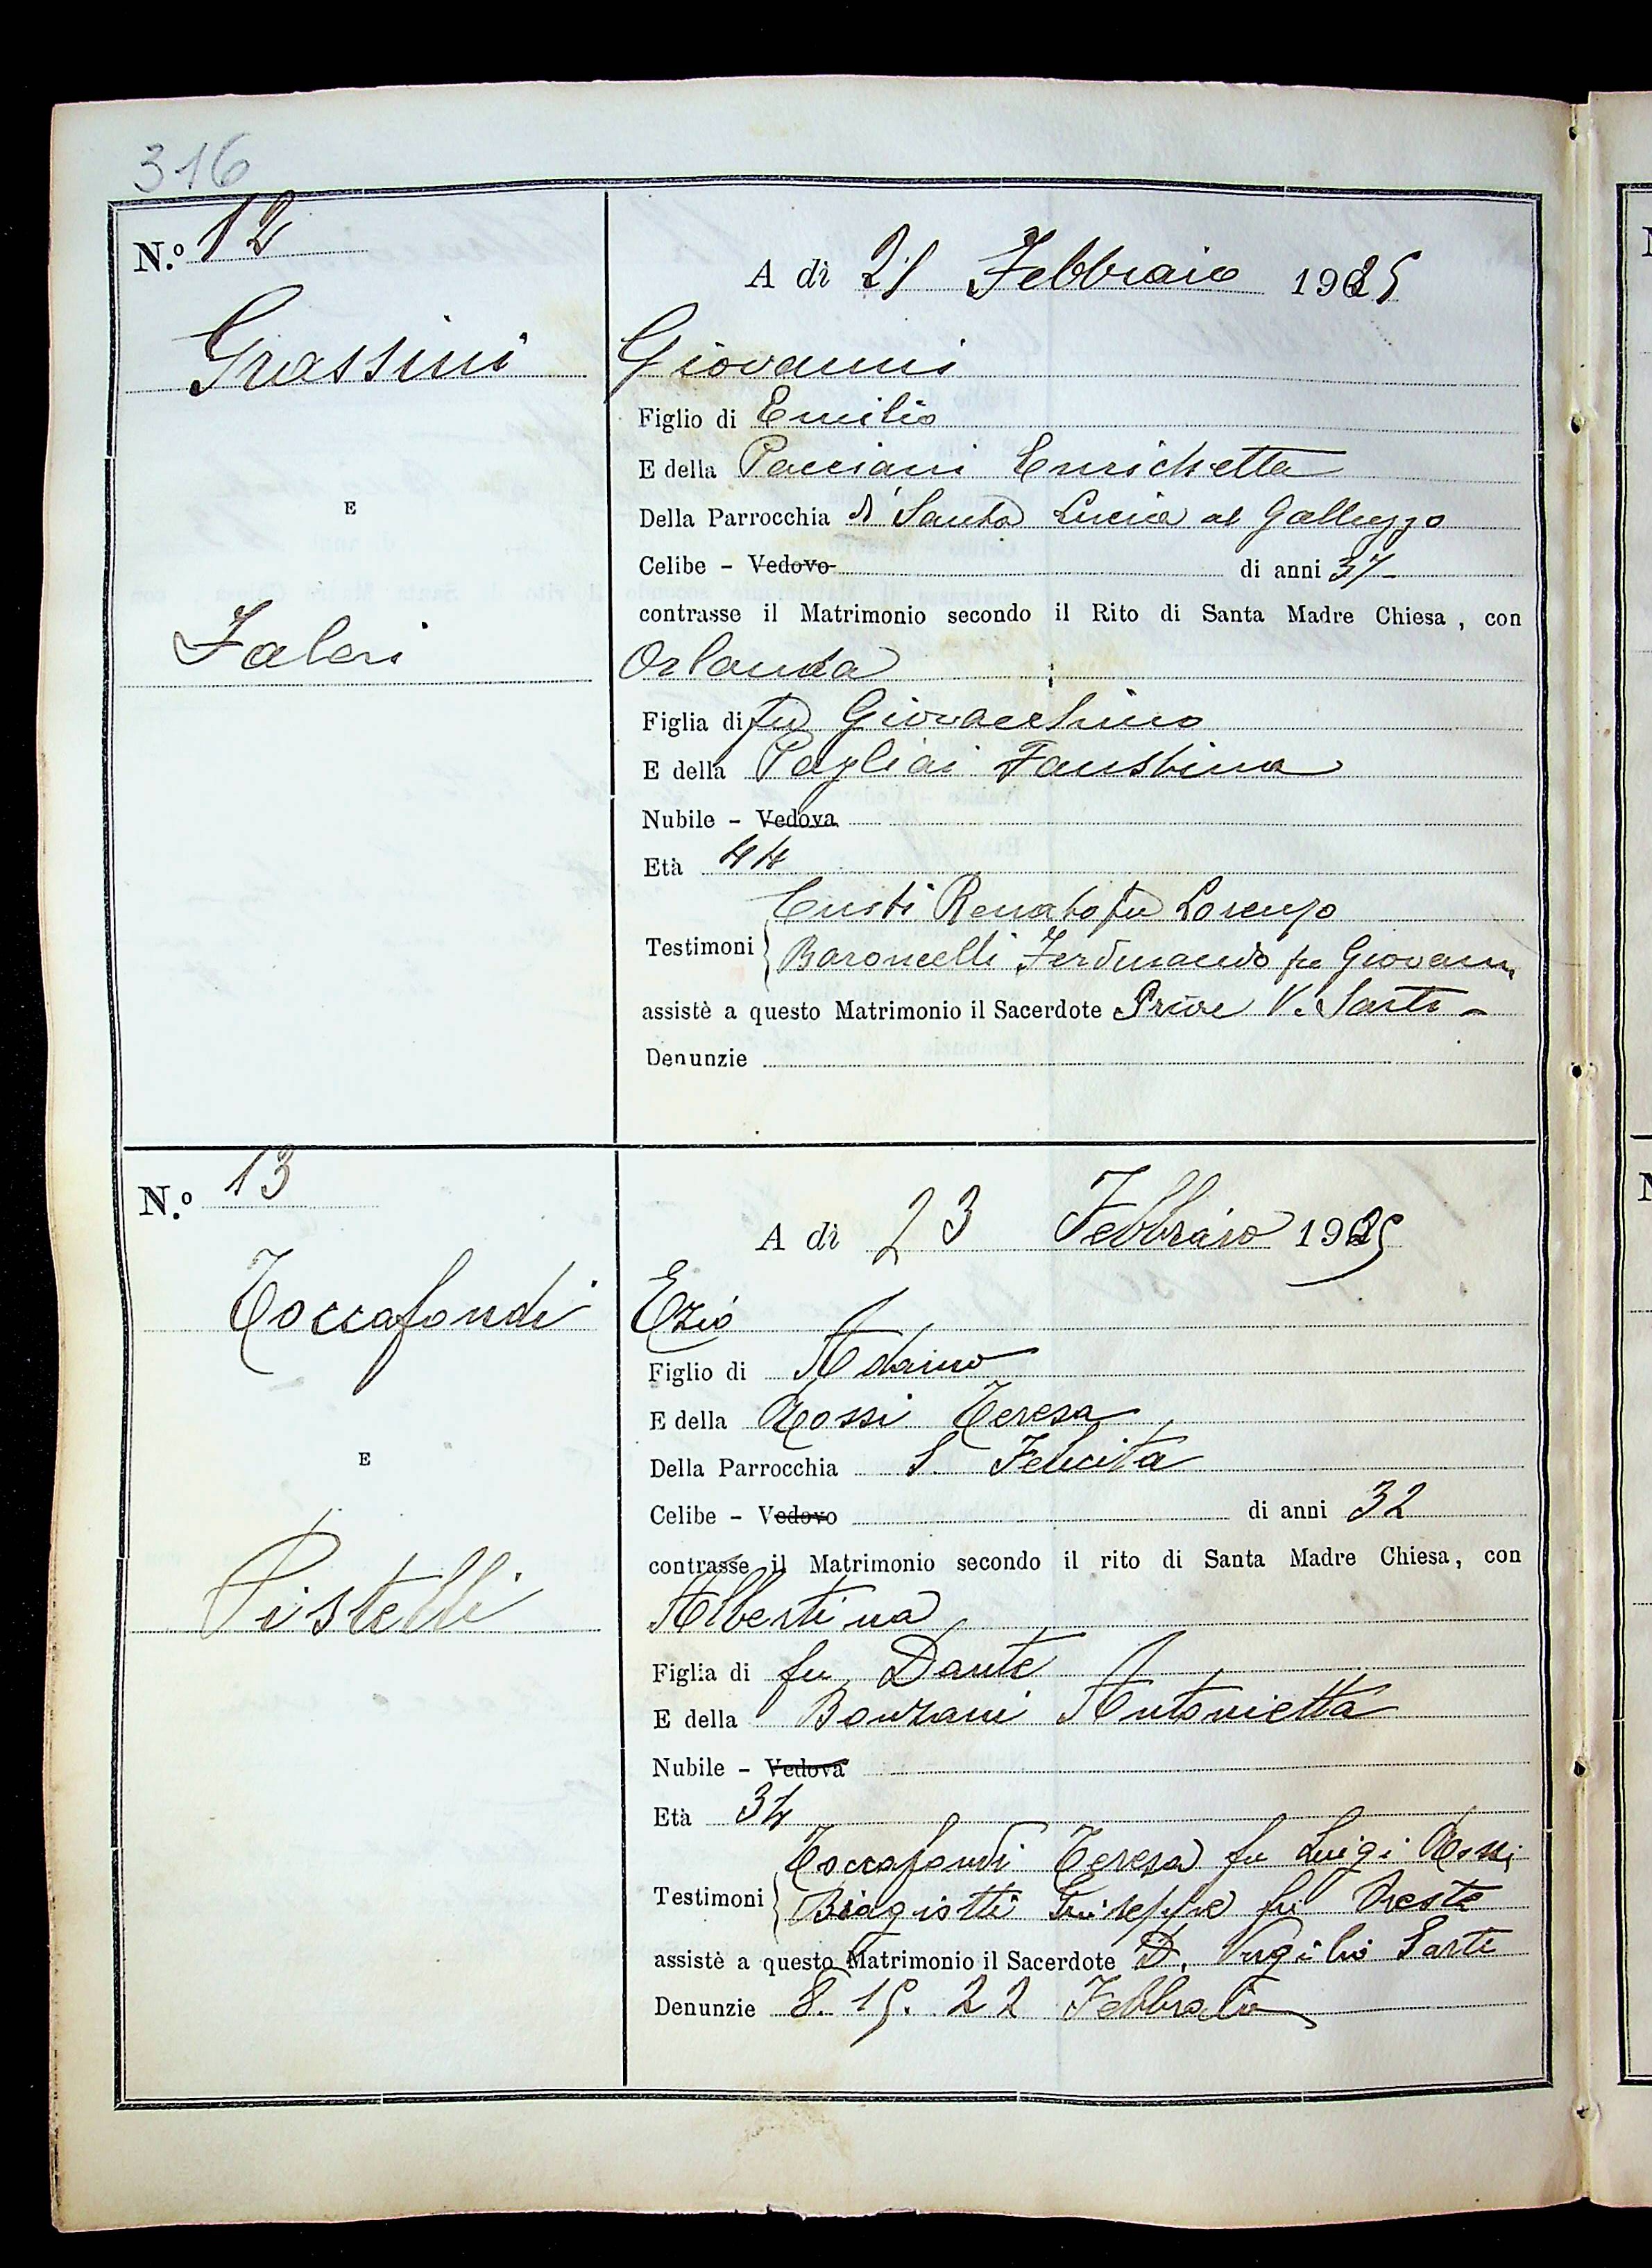 316
N.º 12
A dì 21 Febbraio 1925
Grassini
Giovanni
Figlio di Emilio
E della Pacciani Enrichetta
E
Della Parrocchia di Santa Lucia al Galluzzo
Celibe - Vedovo di anni 37
contrasse il Matrimonio secondo il Rito di Santa Madre Chiesa, con
Faleri
Orlanda
Figlia di fu Giovacchino
E della Pagliai Faustina
Nubile - Vedova
Età 44
Renato fu Lorenzo
Testimoni Baroncelli Ferdinando fu Giovanni
assistè a questo Matrimonio il Sacerdote Priore V. Sarti
Denunzie
N.º 13
A dì 23 Febbraio 1925
Toccafondi
Ezio
Figlio di Adamo
E della Rossi Teresa
E
Della Parrocchia S. Felicita
Celibe - Vedovo di anni 32
contrasse il Matrimonio secondo il rito di Santa Madre Chiesa, con
Pistelli
Albertina
Figlia di fu Dante
E della Bonzani Antonietta
Nubile - Vedova
Età 34
Toccafondi Teresa fu Luigi Rossi
Testimoni Biagiotti Giuseppe fu Oreste
assistè a questo Matrimonio il Sacerdote D. Virgilio Sarti
Denunzie 8. 15. 22 Febbraio